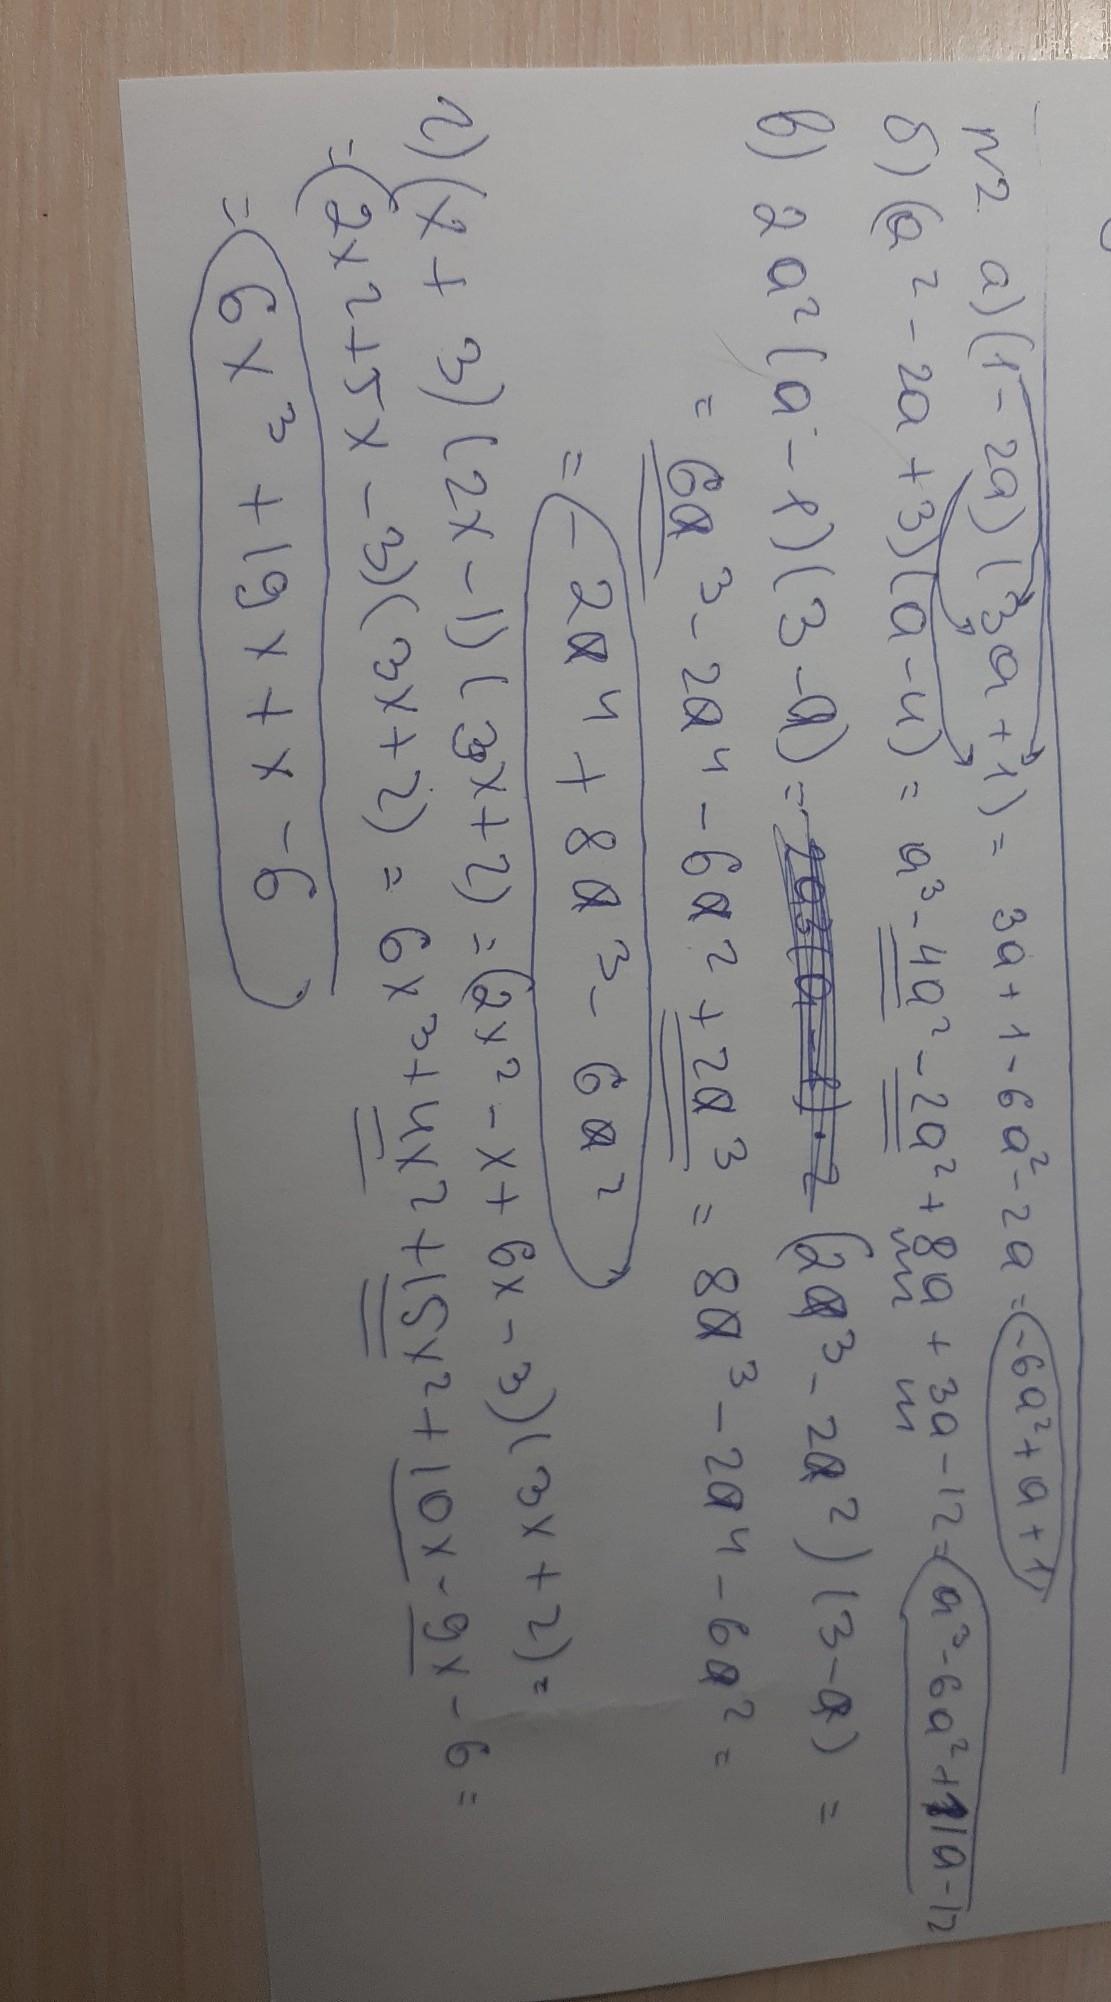 №2 а) (1 - 2a) (3a + 1) = 3a + 1 - 6a² - 2a = -6a² + a + 1
б) (a² - 2a + 3) (a - 4) = a³ - 4a² - 2a² + 8a + 3a - 12 = a³ - 6a² + 11a - 12
в) 2a² (a - 1) (3 - a) = (2a³ - 2a²) (3 - a) =
= 6a³ - 2a⁴ - 6a² + 2a³ = 8a³ - 2a⁴ - 6a² =
= -2a⁴ + 8a³ - 6a²
г) (x + 3) (2x - 1) (3x + 2) = (2x² - x + 6x - 3) (3x + 2) =
= (2x² + 5x - 3) (3x + 2) = 6x³ + 4x² + 15x² + 10x - 9x - 6 =
= 6x³ + 19x + x - 6